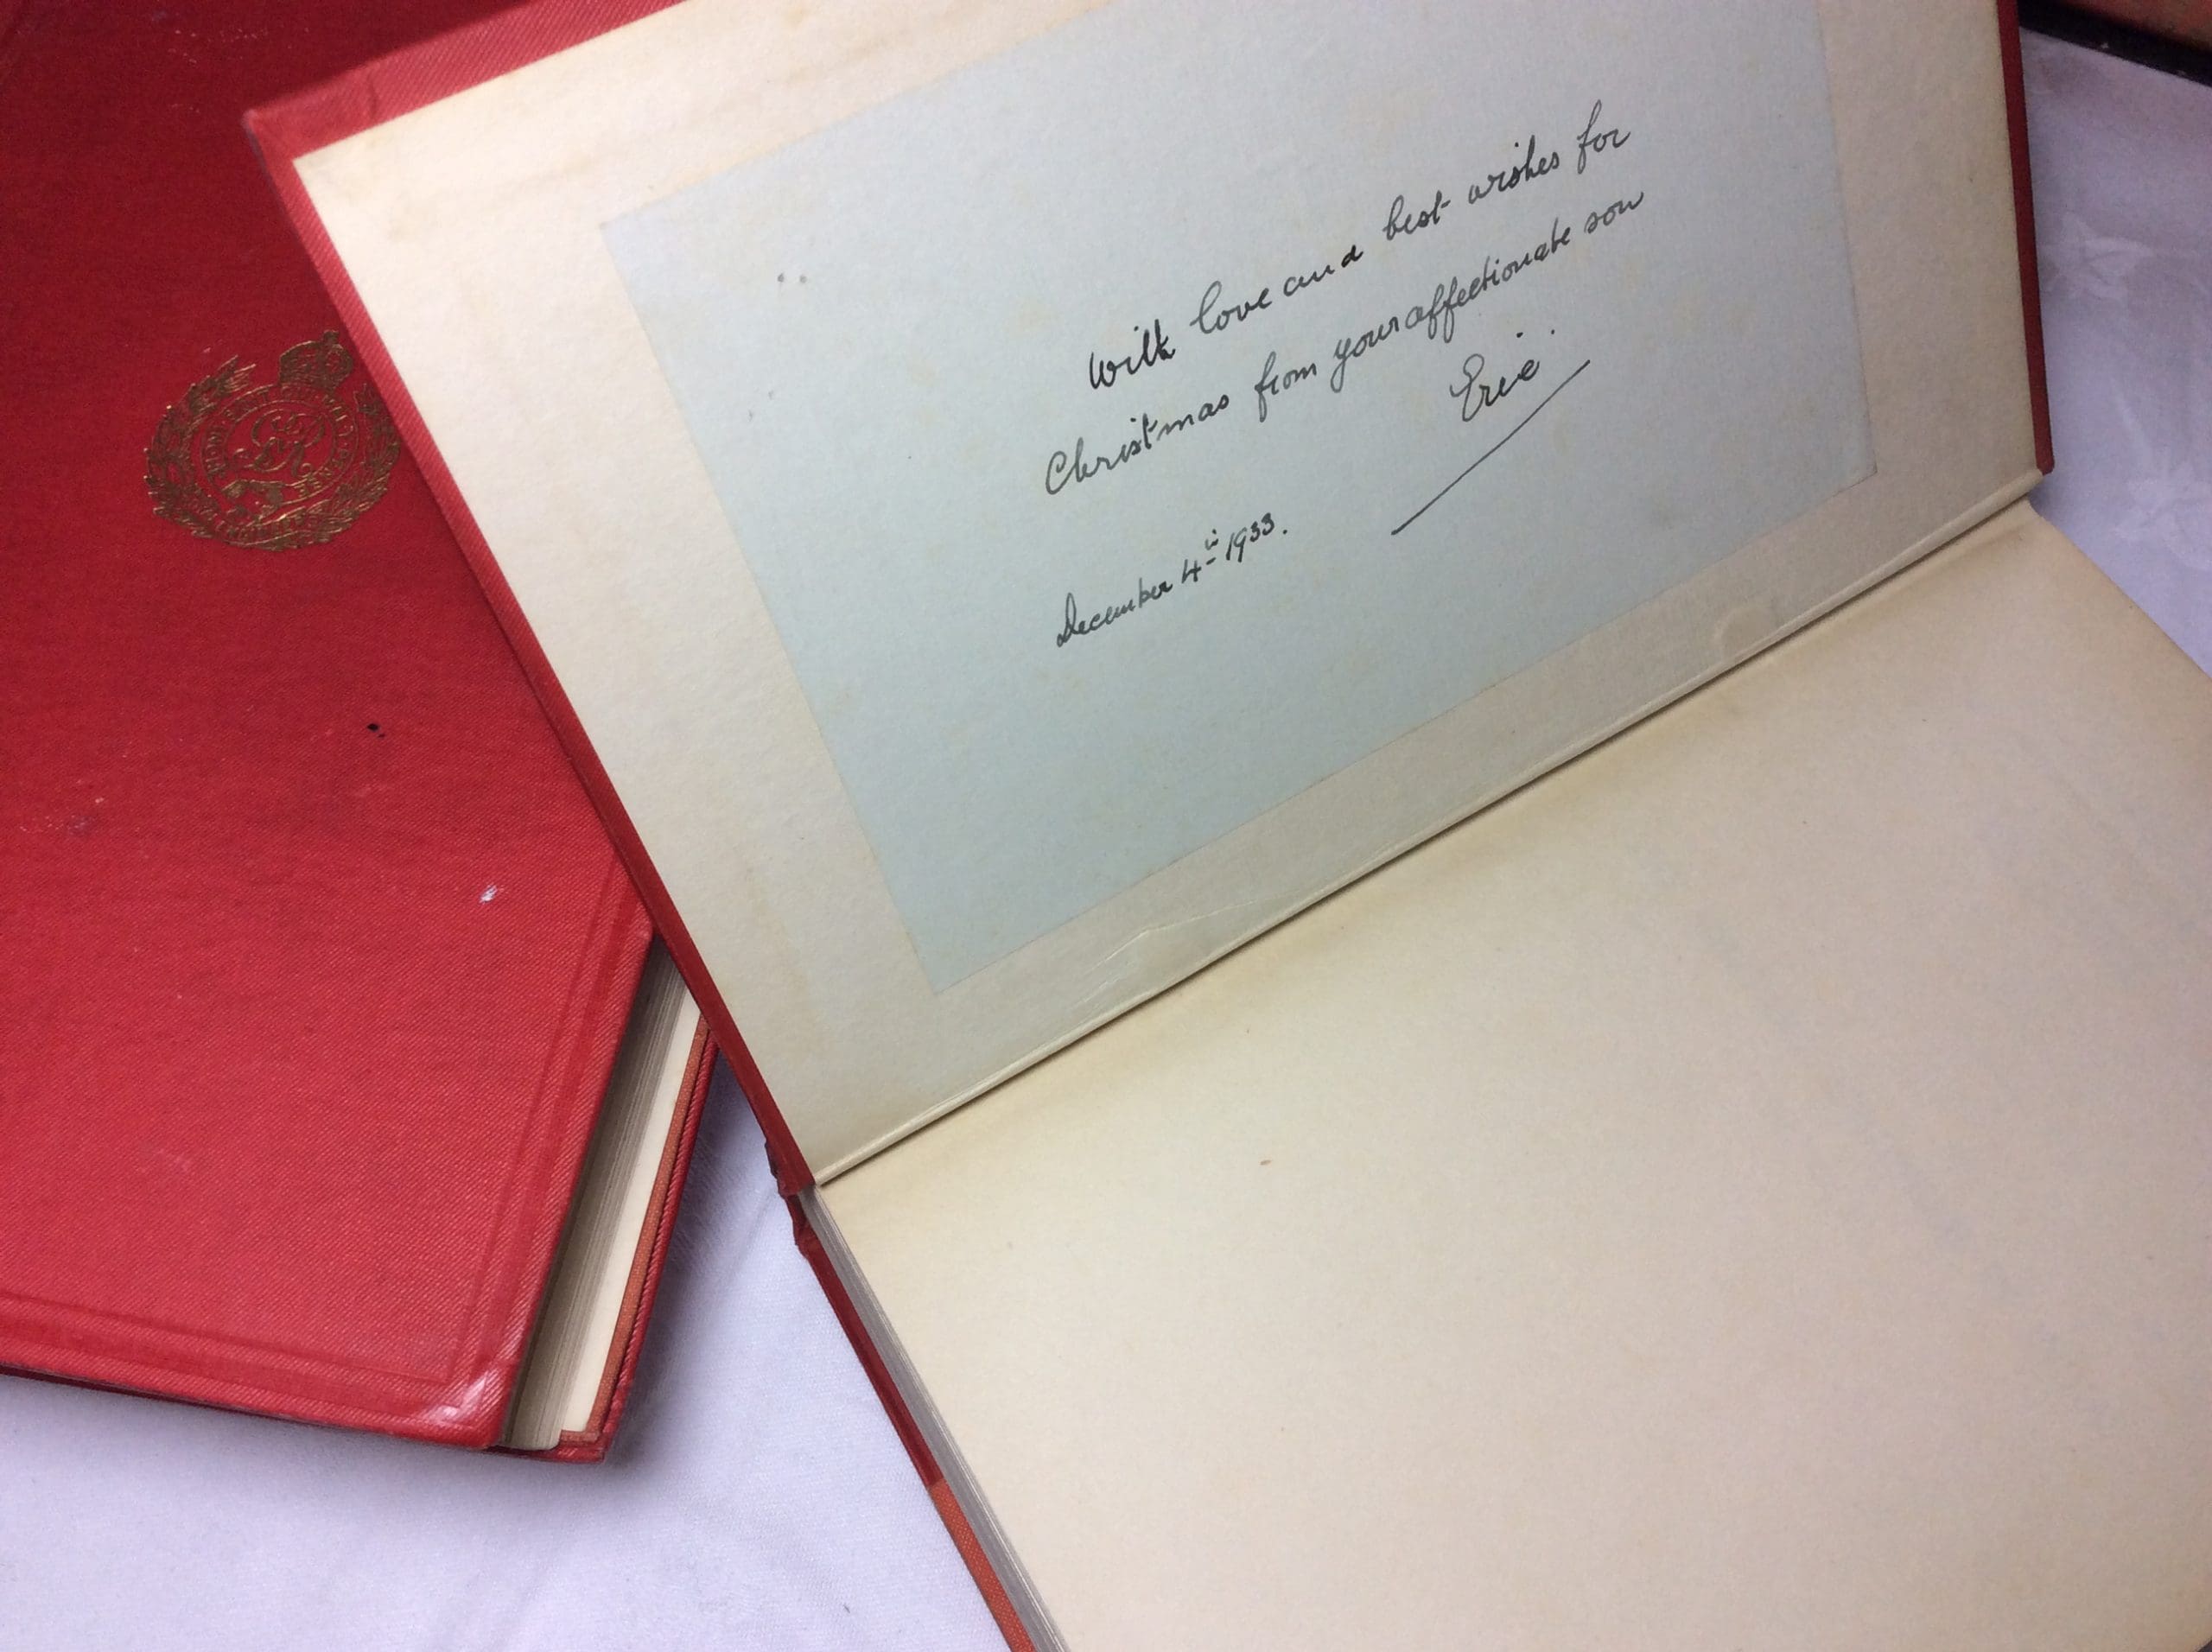 With love and best wishes for
Christmas from your affectionate son
Eric.
December 4th 1933.